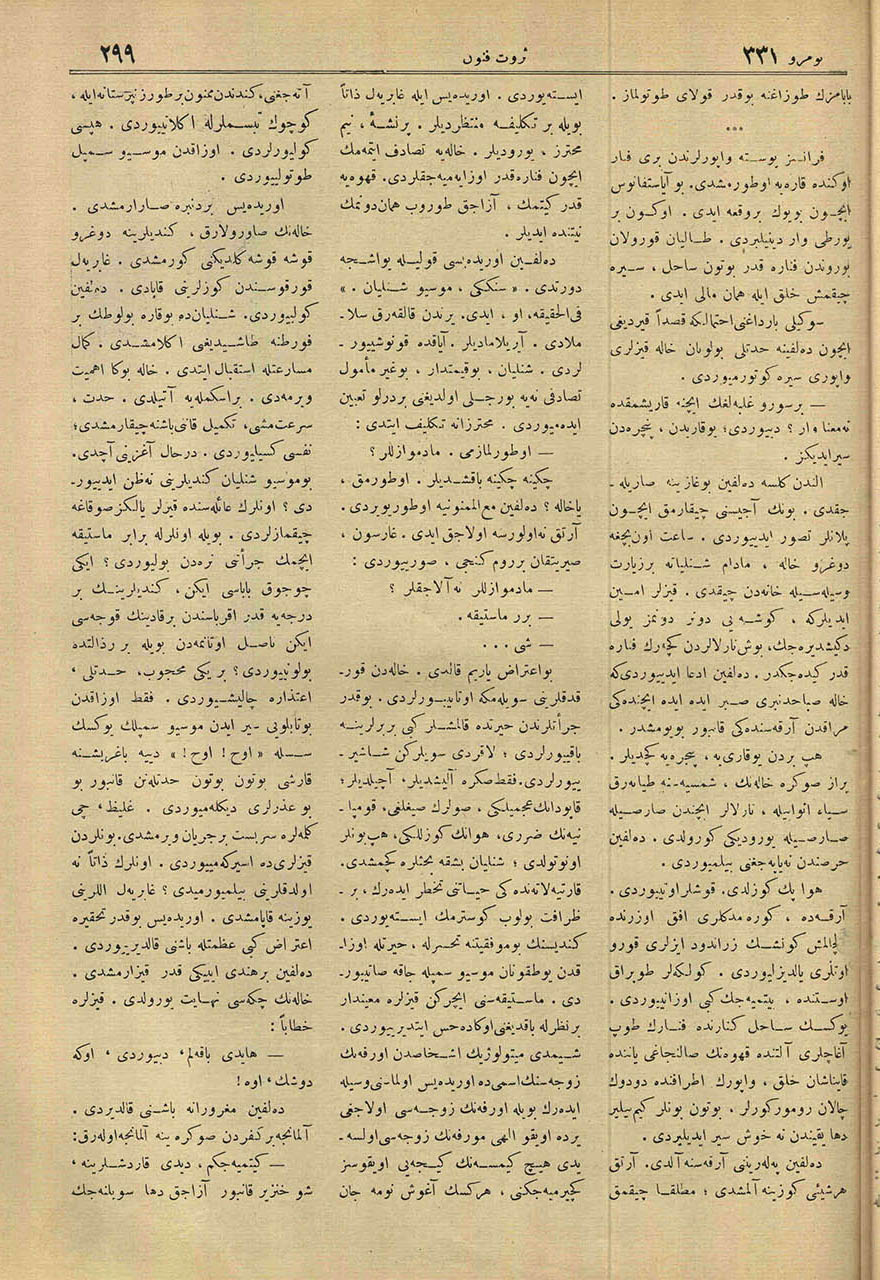 نومرو ٣٣١
ثروت فنون
٢٩٩
بابامزك طوزاغنه بوقدر قولای طوتولماز .
***
فرانسز پوسته واپورلرندن بری فنار
اوكنده قارەیه اوطورمشدی. بو آیاستفانوس
ایچون بویوك بروقعه ایدی . اوكون بر
یورطی وار دینیلیردی . طالیان قورولان
بوروندن فناره قدر بوتون ساحل ، سیره
چیقمش خلق ایله همان مالی ایدی .
سوكیلی بارداغنی احتمالكه قصداً قیردیغی
ایچون دەلفینه حدتلی بولونان خاله قیزلری
واپوری سیره كوتورمیوردی .
— برسورو غلبەلغك ایچنه قاریشمقده
نەمعنا وار ؟ دییوردی؛ یوقاریدن ، پنجرەدن
سیر ایدیكز .
الندن كلسه دەلفین بوغازینه صاریله-
جقدی . بونك آجیسنی چیقارمق ایچون
پلانلر تصور ایدییوردی . ساعت اون‌بچغه
دوغرو خاله ، مادام شنلیانه برزیارت
وسیله‌سیله خانەدن چیقدی . قیزلر امین
ایدیلركه ، كوشه‌یی دونر دونمز یولی
دكیشدیرەجك، بوش نارلالردن كچەرك فناره
قدر كیدەجكدر . دەلفین ادعا ایدییوردی‌كه
خاله صباحدنبری صبر ایده ایده ایچندەكی
مراقدن آرقه‌سندەكی قانبور بویومشدر .
هپ بردن یوقاری‌یه ، پنجرەیه كچدیلر .
براز صوكره خالەنك ، شمسیه‌سنه طیانەرق
سیاه اثوابیله ، نارلالر ایچندن صارصیله
صارصیله یورودیكی كورولدی . دەلفین
حرصندن نه‌یاپه‌جغنی بیلمیوردی .
هوا پك كوزلدی. قوشلر اوتییوردی .
آرقەده ، كورەمدكلری افق اوزرنده
آلچالمش كونشك زراندود ایزلری قورو
اوتلری یالدیزلیوردی . كولكەلر طوپراق
اوستنده ، بیتمیه‌جك كبی اوزانییوردی .
یوكسك ساحل كنارنده فنارك طوپ
آغاجلری آلتنده قهوەنك صالنجاغی یاننده
قایناشان خلق ، واپورك اطرافنده دودوك
چالان روموركورلر ، بوتون بونلر كیم‌بیلیر
دها یقیندن نه خوش سیر ایدیلیردی .
دەلفین پەلەرینی آرقه‌سنه آلدی. آرتق
هرشیئی كوزینه آلمشدی ؛ مطلقا چیقمق
ایسته‌یوردی . اوریدەیس ایله غابریەل ذاتاً
بویله بر تكلیفه منتظردیلر . پرنشئه ، نیم
محترز ، یورودیلر . خاله‌یه تصادف ایتمەمك
ایچون فنارەقدر اوزانمیه‌جقلردی. قهوەیه
قدر كیتمك ، آزاجق طوروب همان‌دونمك
نیتنده ایدیلر .
دەلفین اوریدەیسی قولیله یواشجه
دورتدی. « سنككی ، موسیو شنلیان . »
فی‌الحقیقه، او ، ایدی. یرندن قالقه‌رق سلا-
ملادی . آیریلامادیلر. آیاقده قونوشییور-
لردی . شنلیان ، بوقیمتدار ، بوغیر مأمول
تصادفی نه‌یه بورجلی اولدیغنی بردرلو تعیین
ایدەمیوردی . محترزانه تكلیف ایتدی :
— اوطورلمازمی . مادموازللر ؟
چكینه چكینه باقشدیلر . اوطورمق ،
یاخاله ؟ دەلفین مع‌الممنونیه اوطوریوردی.
آرتق نه‌اولورسه اولاجق ایدی . غارسون ،
صیریتقان برروم كنجی ، صورییوردی :
— مادموازللر نه‌آلاجقلر ؟
— برر ماستیقه .
— شی . . .
بواعتراض یاریم قالدی . خالەدن قور-
قدقلرینی سویله‌مكه اوتانییورلردی . بوقدر
جرأتلرندن حیرتده قالمشلر كبی بربرلرینه
باقییورلردی ؛ لاقردی سویلركن شاشیر-
ییورلردی. فقط صكره آلیشدیلر، آچیلدیلر؛
قاپودانك عجمیلیكی ، صولرك صیغلغی ، قومپا-
نیه‌نك ضرری، هوانك كوزللكی، هپ‌بونلر
اونوتولدی ؛ شنلیان بشقه بحثلره كچمشدی.
قارتیه‌لاتەندەكی حیاتنی تخطر ایدەرك ، بر
ظرافت بولوب كوسترمك ایسته‌یوردی .
كندیسنك بوموفقیتنه تحسرله ، حیرتله اوزا-
قدن یوطقونان موسیو سمپله جاقه صاتیبور-
دی . ماستیقه‌سنی ایچركن قیزلره معیندار
برنظرله باقدیغنی اوكادەحس ایتدیرییوردی .
شیمدی میتولوژیك اشخاصدن اورفەنك
زوجه‌سنك‌اسمی‌ده اوریدەیس اولماسنی‌وسیله
ایدەرك بویله اورفەنك زوجه‌سی اولاجغی
یرده اویقو الهی مورفەنك زوجه‌سی‌اولسه-
یدی هیچ كیمسه‌نك كیجه‌یی اویقوسز
كچیرمیه‌جكنی ، هركسك آغوش نومه جان
آته‌جغنی، كندندن ممنون‌بر طورز نپرستانه‌ایله ،
كوچوك تبسملرله اكلاتییوردی . هپسی
كولیورلردی . اوزاقدن موسیو سمپل
طوتولییوردی .
اوریدەیس بردنبره صارارمشدی .
خالەنك صاورولارق ، كندیلرینه دوغرو
قوشه قوشه كلدیكنی كورمشدی . غابریەل
قورقوسندن كوزلرینی قاپادی . دەلفین
كولییوردی. شنلیان‌ده بوقاره بولوطك بر
فورطنه طاشیدیغنی اكلامشدی . كمال
مسارعتله استقبال ایتدی . خاله بوكا اهمیت
ویرمەدی . براسكمله‌یه آتیلدی . حدت ،
سرعت‌مشی، تكمیل قاننی باشنه چیقارمشدی؛
نفسی كسیلیوردی . درحال آغزینی آچدی.
بوموسیو شنلیان كندیلرینی نه‌ظن ایدییور-
دی ؟ اونلرك عائله‌سنده قیزلر یالكز صوقاغه
چیقمازلردی . بویله اونلرله برابر ماستیقه
ایچمك جرأتنی نرەدن بولیوردی ؟ ایكی
چوجوق باباسی ایكن، كندیلرینك بر
درجه‌یه قدر اقرباسندن برقادینك قوجه‌سی
ایكن ناصل اوتانمەدن بویله بر رذالتده
بولونییوردی؟ بریكی محجوب، حدتلی ،
اعتذاره چالیشییوردی . فقط اوزاقدن
بوتابلویی سیر ایدن موسیو سمپلك یوكسك
سسله « اوح ! اوح ! » دییه باغریشنه
قارشی بوتون بوتون حدتلەنن قانبور بو
بو عذرلری دیكلەمیوردی . غلیظ، چی
كلمەلره سربست برجریان ویرمشدی. بونلردن
قیزلری‌ده اسیركه‌مییوردی . اونلرك ذاتاً نه
اولدقلرینی بیلمیورمیدی ؟ غابریەل اللرینی
یوزینه قاپامشدی . اوریدەیس بوقدر تحقیره
اعتراض كبی عظمتله باشنی قالدیرییوردی .
دەلفین برهندی ایبیكی قدر قیزارمشدی .
خالەنك چكه‌سی نهایت یورولدی . قیزلره
خطاباً :
— هایدی باقه‌لم، دییوردی ، اوكه
دوشك ، اوه !
دەلفین مغرورانه باشنی قالدیردی .
آلمانجه بركفردن صوكره ینه آلمانجه اوله‌رق:
— كیتمیه‌جكم، دیدی قاردشلرینه ،
شو خنزیر قانبور آزاجق دها سویلنه‌جك